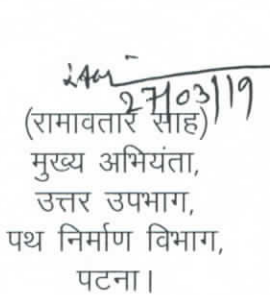 27/03/19
(रामावतार साह)
मुख्य अभियंता,
उत्तर उपभाग,
पथ निर्माण विभाग,
पटना।